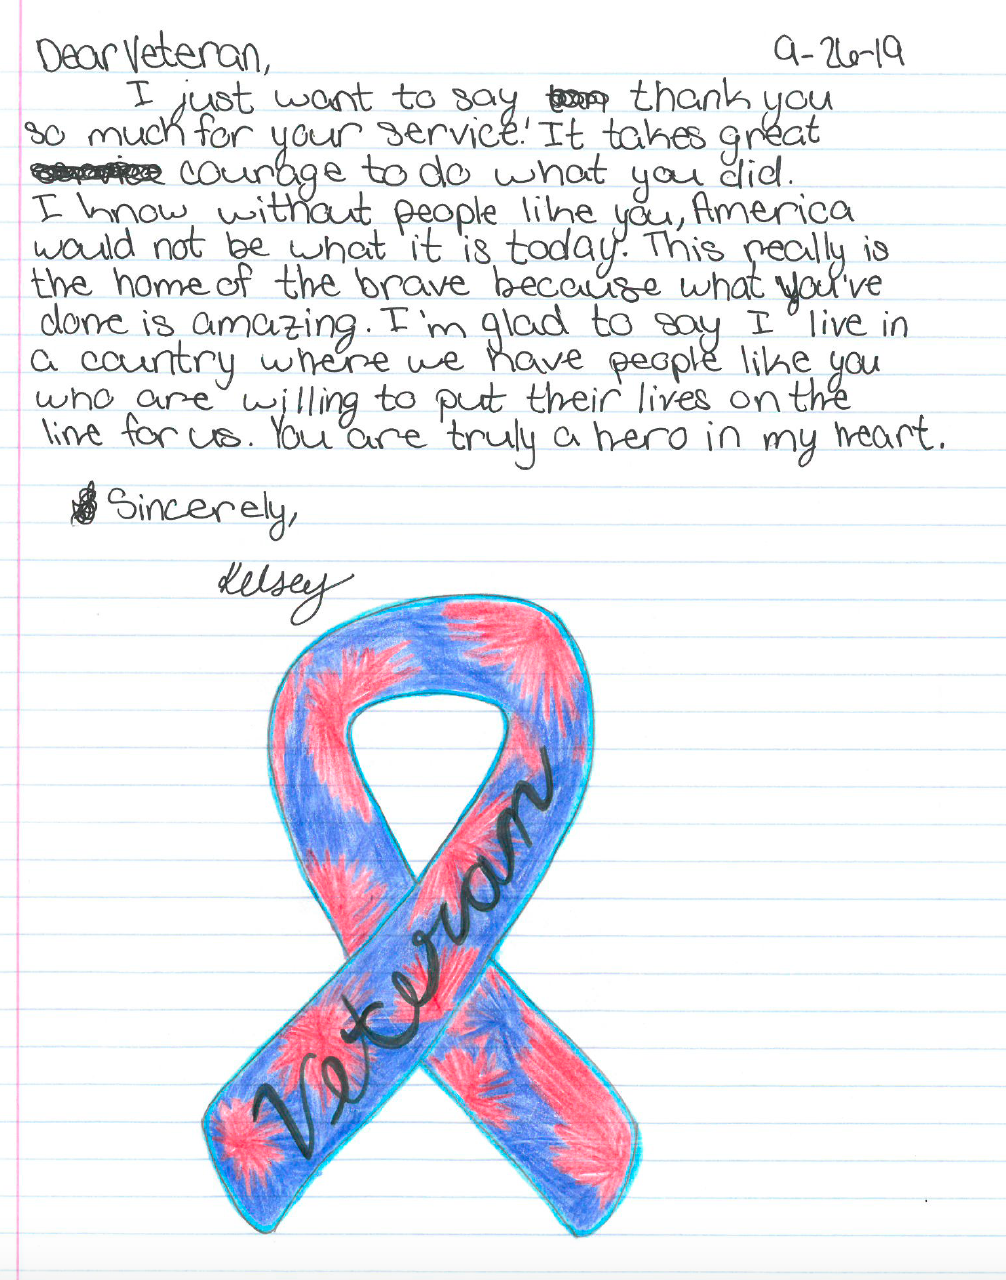 Dear Veteran, 9-26-19
I just want to say thank you
so much for your service! It takes great
courage to do what you did.
I know without people like you, America
would not be what it is today. This really is
the home of the brave because what you've
done is amazing. I'm glad to say I live in
a country where we have people like you
who are willing to put their lives on the
line for us. You are truly a hero in my heart.
Sincerely,
Kelsey
Veteran